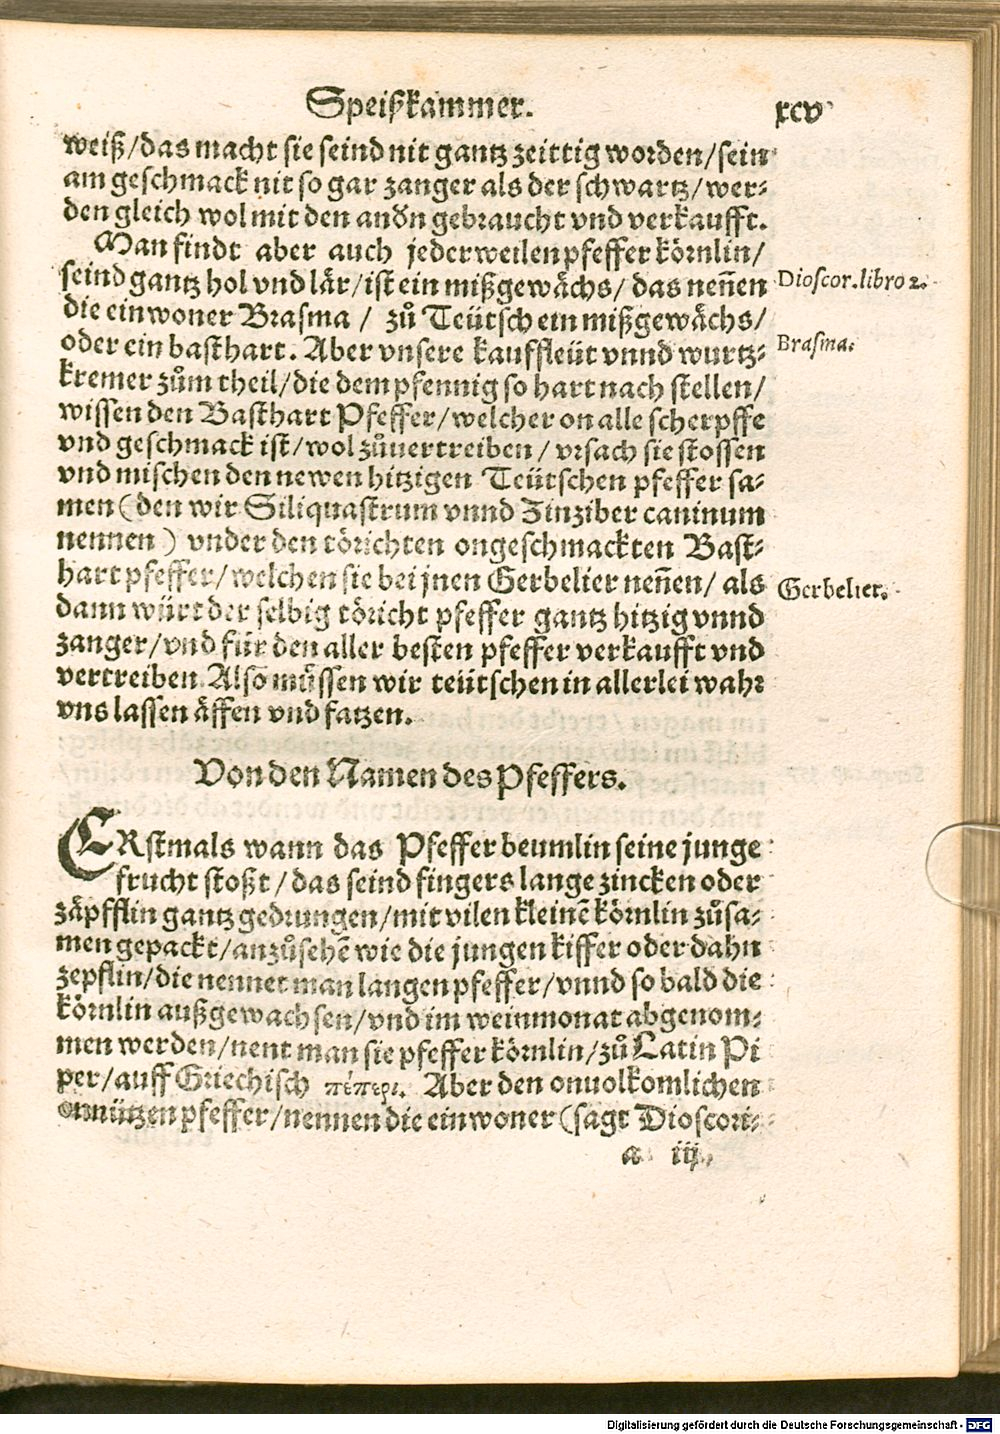 Speißkammer. xcv
weiß/das macht sie seind nit gantz zeittig worden/sein
am geschmack nit so gar zanger als der schwartz/wer-
den gleich wol mit den andn gebraucht vnd verkaufft.
Man findt aber auch jederweilen pfeffer körnlin/
seind gantz hol vnd lär/ist ein mißgewächs/das neñen
Dioscor.libro 2.
die einwoner Brasma / zů Teütsch ein mißgewächs/
oder ein basthart. Aber vnsere kauffleüt vnnd wurtz-
Brasma.
kremer zům theil/die dem pfennig so hart nach stellen/
wissen den Basthart Pfeffer/welcher on alle scherpffe
vnd geschmack ist/wol zůuertreiben/vrsach sie stossen
vnd mischen den newen hitzigen Teütschen pfeffer sa-
men (den wir Siliquastrum vnnd Zinziber caninum
nennen) vnder den törichten ongeschmackten Bast-
hart pfeffer/welchen sie bei jnen Gerbelier neñen/als
Gerbelier.
dann würt der selbig töricht pfeffer gantz hitzig vnnd
zanger/vnd für den aller besten pfeffer verkaufft vnd
vertreiben. Also müssen wir teütschen in allerlei wahr
vns lassen äffen vnd fatzen.
Von den Namen des Pfeffers.
ERstmals wann das Pfeffer beumlin seine junge
frucht stoßt/das seind fingers lange zincken oder
zäpfflin gantz gedrungen/mit vilen kleinẽ körnlin zůsa-
men gepackt/anzůsehẽ wie die jungen kiffer oder dahn
zepflin/die nennet man langen pfeffer/vnnd so bald die
körnlin außgewachsen/vnd im weinmonat abgenom-
men werden/nent man sie pfeffer körnlin/zů Latin Pi
per/auff Griechisch πέπερι. Aber den onuolkomlichen
onnützen pfeffer/nennen die einwoner (sagt Dioscori-
a iij
Digitalisierung gefördert durch die Deutsche Forschungsgemeinschaft - DFG